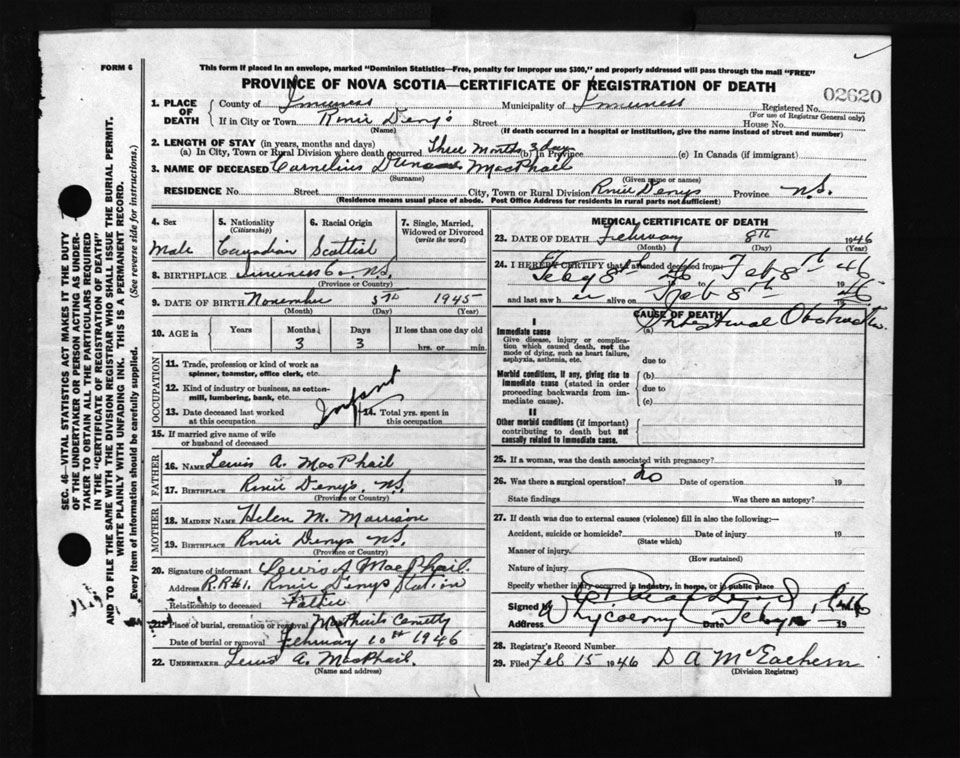 FORM 6
This form if placed in an envelope, marked "Dominion Statistics—Free, penalty for improper use $300," and properly addressed will pass through the mail "FREE"
PROVINCE OF NOVA SCOTIA—CERTIFICATE OF REGISTRATION OF DEATH
02620
1. PLACE OF DEATH
County of Inverness Municipality of Inverness Registered No.
(For use of Registrar General only)
If in City or Town River Denys Street House No.
(Name) (If death occurred in a hospital or institution, give the name instead of street and number)
2. LENGTH OF STAY (in years, months and days)
(a) In City, Town or Rural Division where death occurred Three Months 3 days (b) In Province (c) In Canada (if immigrant)
3. NAME OF DECEASED Cornelius MacPhail
(Surname) (Given name or names)
RESIDENCE No. Street City, Town or Rural Division River Denys Province N.S.
(Residence means usual place of abode. Post Office Address for residents in rural parts not sufficient)
4. Sex
Male
5. Nationality (Citizenship)
Canadian
6. Racial Origin
Scottish
7. Single, Married, Widowed or Divorced (write the word)
8. BIRTHPLACE Inverness Co. N.S.
(Province or Country)
9. DATE OF BIRTH November 5th 1945
(Month) (Day) (Year)
10. AGE in Years Months Days If less than one day old
3 3 hrs. or min.
OCCUPATION
11. Trade, profession or kind of work as spinner, teamster, office clerk, etc.
12. Kind of industry or business, as cotton-mill, lumbering, bank, etc.
Infant
13. Date deceased last worked at this occupation
14. Total yrs. spent in this occupation
15. If married give name of wife or husband of deceased
FATHER
16. NAME Lewis A. MacPhail
17. BIRTHPLACE River Denys N.S.
(Province or Country)
MOTHER
18. MAIDEN NAME Helen M. Morrison
19. BIRTHPLACE River Denys N.S.
(Province or Country)
20. Signature of informant Lewis A MacPhail
Address R.R#1. River Denys Station
Relationship to deceased Father
21. Place of burial, cremation or removal MacPhails Cemetery
Date of burial or removal February 10th 1946
22. UNDERTAKER Lewis A. MacPhail.
(Name and address)
MEDICAL CERTIFICATE OF DEATH
23. DATE OF DEATH February 8th 1946
(Month) (Day) (Year)
24. I HEREBY CERTIFY that I attended deceased from:
Feby 8th 46 to Feb 8th 1946
and last saw h er alive on Feb 8th 1946
CAUSE OF DEATH
I
Immediate cause (a) Intestinal Obstruction
Give disease, injury or complication which caused death, not the mode of dying, such as heart failure, asphyxia, asthenia, etc.
due to
Morbid conditions, if any, giving rise to immediate cause (stated in order proceeding backwards from immediate cause).
(b)
due to
(c)
II
Other morbid conditions (if important) contributing to death but not causally related to immediate cause.
25. If a woman, was the death associated with pregnancy?
26. Was there a surgical operation? No Date of operation 19
State findings Was there an autopsy?
27. If death was due to external causes (violence) fill in also the following:
Accident, suicide or homicide? Date of injury 19
(State which)
Manner of injury
(How sustained)
Nature of injury
Specify whether injury occurred in industry, in home, or in public place
Signed by
Address Whycocomagh Date 19
28. Registrar's Record Number
29. Filed Feb 15 1946 D A McEachern
(Division Registrar)
SEC. 46—VITAL STATISTICS ACT MAKES IT THE DUTY
OF THE UNDERTAKER OR PERSON ACTING AS UNDER-
TAKER TO OBTAIN ALL THE PARTICULARS REQUIRED
IN THE "CERTIFICATE OF REGISTRATION OF DEATH"
AND TO FILE THE SAME WITH THE DIVISION REGISTRAR WHO SHALL ISSUE THE BURIAL PERMIT.
WRITE PLAINLY WITH UNFADING INK. THIS IS A PERMANENT RECORD.
Every item of information should be carefully supplied. (See reverse side for instructions.)